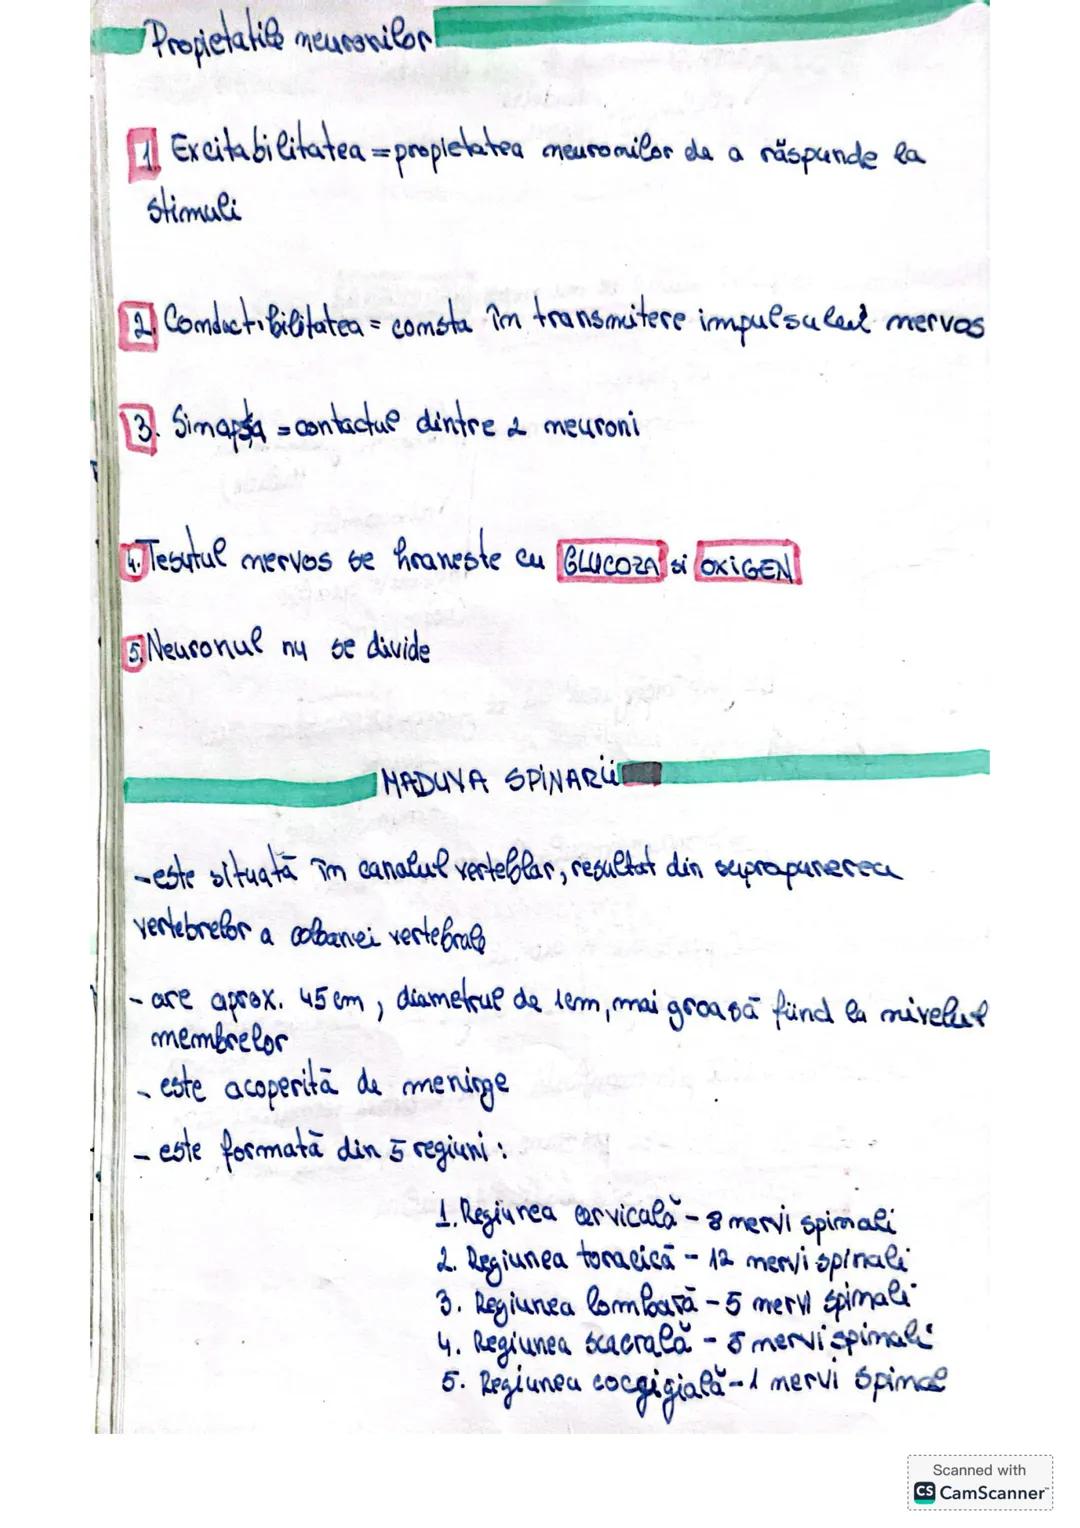 Propietatile neuronilor
1. Excitabilitatea = propietatea neuronilor de a răspunde la
stimuli
2. Conductibilitatea = consta în transmitere impulsului nervos
3. Sinapsa = contactul dintre 2 neuroni
4. Tesutul nervos se hraneste cu GLUCOZA si OXIGEN
5. Neuronul nu se divide
MADUVA SPINARII
- este situată în canalul verteblar, resultat din suprapunerea
vertebrelor a coloanei vertebrale
- are aprox. 45 cm, diametrul de 1cm, mai groasă fiind la nivelul
membrelor
- este acoperită de meninge
- este formată din 5 regiuni:
1. Regiunea cervicală - 8 nervi spinali
2. Regiunea toracică - 12 nervi spinali
3. Regiunea lombară - 5 nervi spinali
4. Regiunea scacrală - 5 nervi spinali
5. Regiunea cocgigială - 1 nervi spinal
Scanned with
CS CamScanner